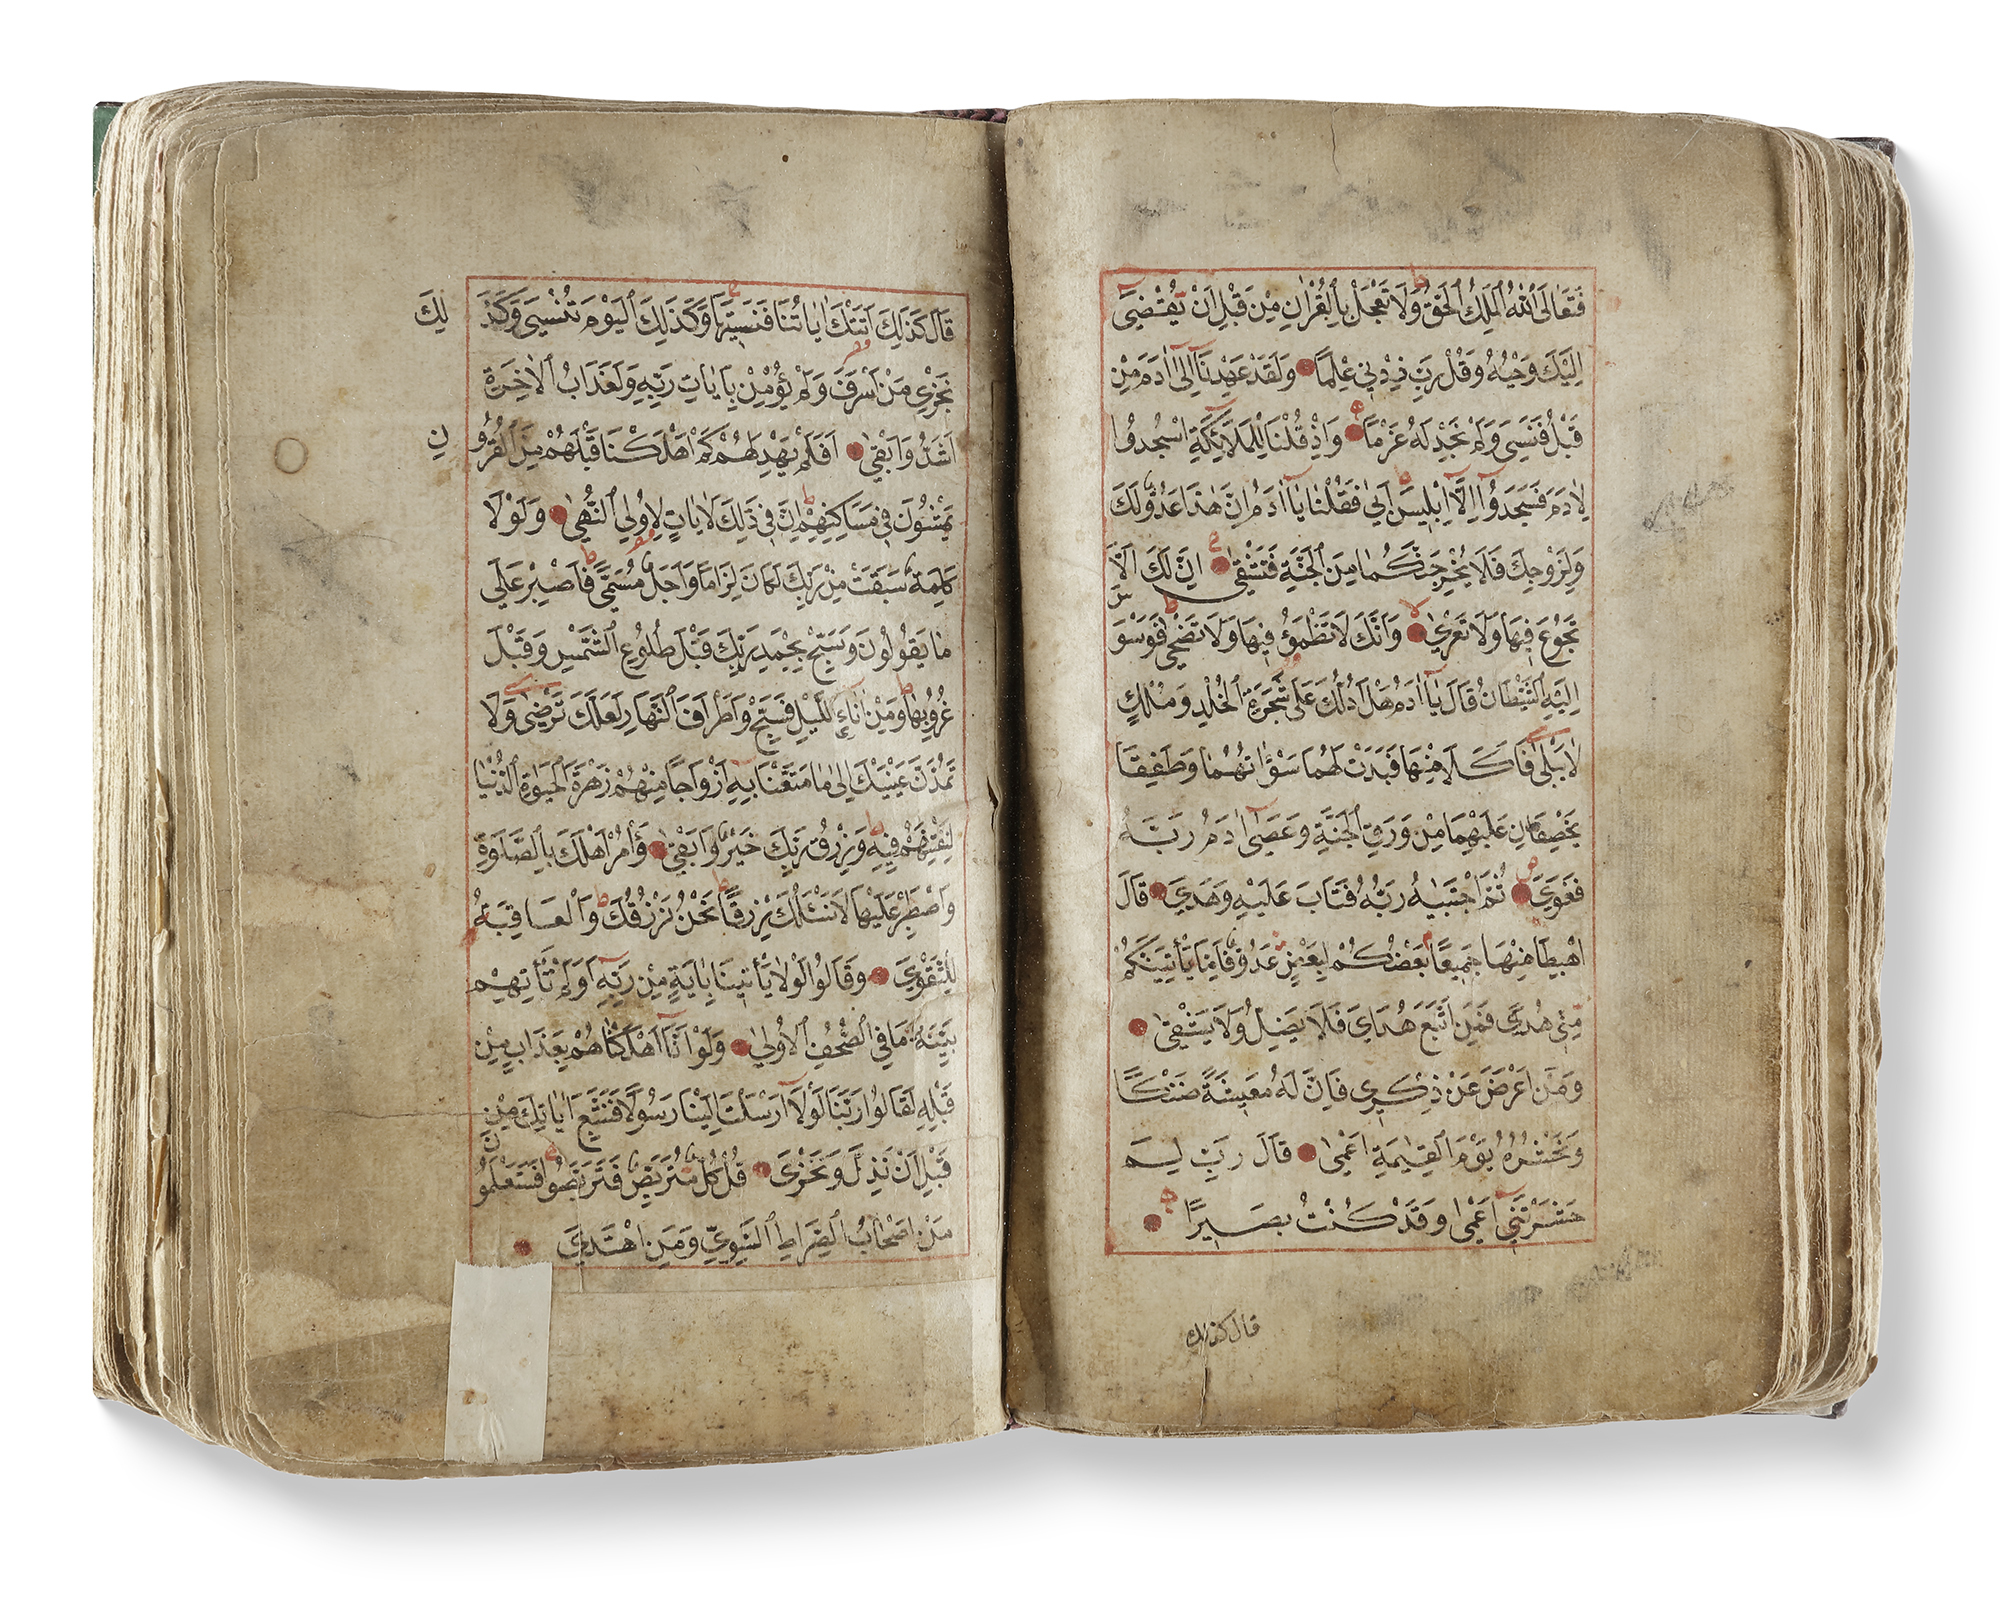 فَتَعَالَى اللّٰهُ الْمَلِكُ الْحَقُّ وَلَا تَعْجَلْ بِالْقُرْاٰنِ مِنْ قَبْلِ اَنْ يُقْضٰىٓ
اِلَيْكَ وَحْيُهُ وَقُلْ رَبِّ زِدْنِي عِلْمًا وَلَقَدْ عَهِدْنَآ اِلٰٓى اٰدَمَ مِنْ
قَبْلُ فَنَسِيَ وَلَمْ نَجِدْ لَهُ عَزْمًا وَاِذْ قُلْنَا لِلْمَلَآئِكَةِ اسْجُدُوا
لِاٰدَمَ فَسَجَدُوٓا اِلَّآ اِبْلِيسَ اَبٰى فَقُلْنَا يَآ اٰدَمُ اِنَّ هٰذَا عَدُوٌّ لَكَ
وَلِزَوْجِكَ فَلَا يُخْرِجَنَّكُمَا مِنَ الْجَنَّةِ فَتَشْقٰى اِنَّ لَكَ اَلَّا
تَجُوعَ فِيهَا وَلَا تَعْرٰى وَاَنَّكَ لَا تَظْمَؤُ فِيهَا وَلَا تَضْحٰى فَوَسْوَسَ
اِلَيْهِ الشَّيْطَانُ قَالَ يَآ اٰدَمُ هَلْ اَدُلُّكَ عَلٰى شَجَرَةِ الْخُلْدِ وَمُلْكٍ
لَا يَبْلٰى فَاَكَلَا مِنْهَا فَبَدَتْ لَهُمَا سَوْاٰتُهُمَا وَطَفِقَا
يَخْصِفَانِ عَلَيْهِمَا مِنْ وَرَقِ الْجَنَّةِ وَعَصٰٓى اٰدَمُ رَبَّهُ
فَغَوٰى ثُمَّ اجْتَبٰيهُ رَبُّهُ فَتَابَ عَلَيْهِ وَهَدٰى قَالَ
اهْبِطَا مِنْهَا جَمِيعًا بَعْضُكُمْ لِبَعْضٍ عَدُوٌّ فَاِمَّا يَأْتِيَنَّكُمْ
مِنِّي هُدًى فَمَنِ اتَّبَعَ هُدَايَ فَلَا يَضِلُّ وَلَا يَشْقٰى
وَمَنْ اَعْرَضَ عَنْ ذِكْرِي فَاِنَّ لَهُ مَعِيشَةً ضَنْكًا
وَنَحْشُرُهُ يَوْمَ الْقِيٰمَةِ اَعْمٰى قَالَ رَبِّ لِمَ
حَشَرْتَنِٓي اَعْمٰى وَقَدْ كُنْتُ بَصِيرًا
قال كذلك
قَالَ كَذٰلِكَ اَتَتْكَ اٰيَاتُنَا فَنَسِيتَهَا وَكَذٰلِكَ الْيَوْمَ تُنْسٰى وَكَذٰلِكَ
نَجْزِي مَنْ اَسْرَفَ وَلَمْ يُؤْمِنْ بِاٰيَاتِ رَبِّهِ وَلَعَذَابُ الْاٰخِرَةِ
اَشَدُّ وَاَبْقٰى اَفَلَمْ يَهْدِ لَهُمْ كَمْ اَهْلَكْنَا قَبْلَهُمْ مِنَ الْقُرُونِ
يَمْشُونَ فِي مَسَاكِنِهِمْ اِنَّ فِي ذٰلِكَ لَاٰيَاتٍ لِاُولِي النُّهٰى وَلَوْلَا
كَلِمَةٌ سَبَقَتْ مِنْ رَبِّكَ لَكَانَ لِزَامًا وَاَجَلٌ مُسَمًّى فَاصْبِرْ عَلٰى
مَا يَقُولُونَ وَسَبِّحْ بِحَمْدِ رَبِّكَ قَبْلَ طُلُوعِ الشَّمْسِ وَقَبْلَ
غُرُوبِهَا وَمِنْ اٰنَآئِ اللَّيْلِ فَسَبِّحْ وَاَطْرَافَ النَّهَارِ لَعَلَّكَ تَرْضٰى وَلَا
تَمُدَّنَّ عَيْنَيْكَ اِلٰى مَا مَتَّعْنَا بِهِٓ اَزْوَاجًا مِنْهُمْ زَهْرَةَ الْحَيٰوةِ الدُّنْيَا
لِنَفْتِنَهُمْ فِيهِ وَرِزْقُ رَبِّكَ خَيْرٌ وَاَبْقٰى وَأْمُرْ اَهْلَكَ بِالصَّلٰوةِ
وَاصْطَبِرْ عَلَيْهَا لَا نَسْئَلُكَ رِزْقًا نَحْنُ نَرْزُقُكَ وَالْعَاقِبَةُ
لِلتَّقْوٰى وَقَالُوا لَوْلَا يَأْتِينَا بِاٰيَةٍ مِنْ رَبِّهِٓ اَوَلَمْ تَأْتِهِمْ
بَيِّنَةُ مَا فِي الصُّحُفِ الْاُولٰى وَلَوْ اَنَّآ اَهْلَكْنَاهُمْ بِعَذَابٍ مِنْ
قَبْلِهِ لَقَالُوا رَبَّنَا لَوْلَآ اَرْسَلْتَ اِلَيْنَا رَسُولًا فَنَتَّبِعَ اٰيَاتِكَ مِنْ
قَبْلِ اَنْ نَذِلَّ وَنَخْزٰى قُلْ كُلٌّ مُتَرَبِّصٌ فَتَرَبَّصُوا فَسَتَعْلَمُونَ
مَنْ اَصْحَابُ الصِّرَاطِ السَّوِيِّ وَمَنِ اهْتَدٰى